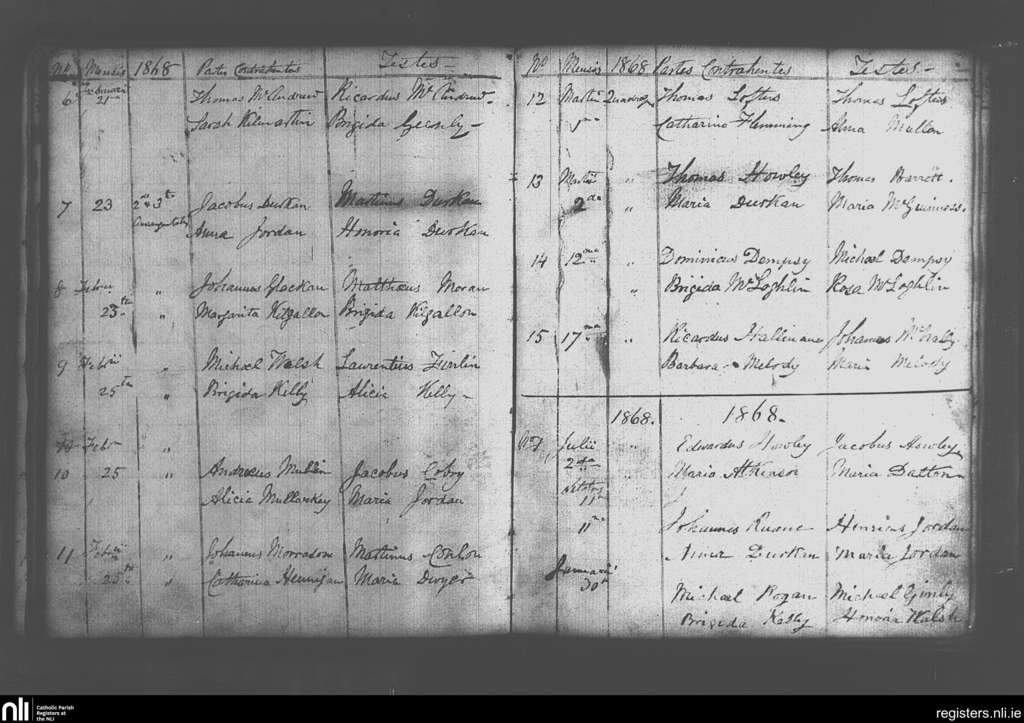 No. Mensis 1868 Partes Contrahentes Testes
6 Februarii Thomas McAndrew Ricardus McAndrew
21 Sarah Kilmartin Brigida
7 23 2 & 3 Jacobus Durkan Martinus Durkan
Anna Jordan Honoria Durkan
8 Febrii " Johannes Glackan Matthaeus Moran
23 " Margarita Kilgallon Brigida Kilgallon
9 Febrii " Michael Walsh Laurentius
25th " Brigida Kelly Alicia Kelly
Feb "
10 25 " Andreas Mullin Jacobus
" Alicia Mullarkey Maria Jordan
11 Febrii " Johannes Martinus Conlon
25th " Catharina Hennigan Maria Dwyer
No Mensis 1868 Partes Contrahentes Testes
12 Martii Thomas Lofters Thomas Lofters
Catharina Flemming Anna Mullen
13 Martii " Thomas Howley Thomas Barrett.
2da " Maria Durkan Maria McGuinness.
14 12ma " Dominicus Dempsy Michael Dempsy
" Brigida McLoghlin Rosa McLoghlin
15 17ma " Ricardus Hallinane Johannes McNally
Barbara Melody Maria Melody
1868. 1868.
Julii " Edwardus Howley Jacobus Howley
2da Maria Atkinson Maria Dalton
11
11ma Johannes Ruane Henricus Jordan
Anna Durkan Maria Jordan
Januarii
30 Michael Rogan Michael Ginly
Brigida Kelly Honoria Walsh
nli Catholic Parish
Registers at
the NLI
registers.nli.ie